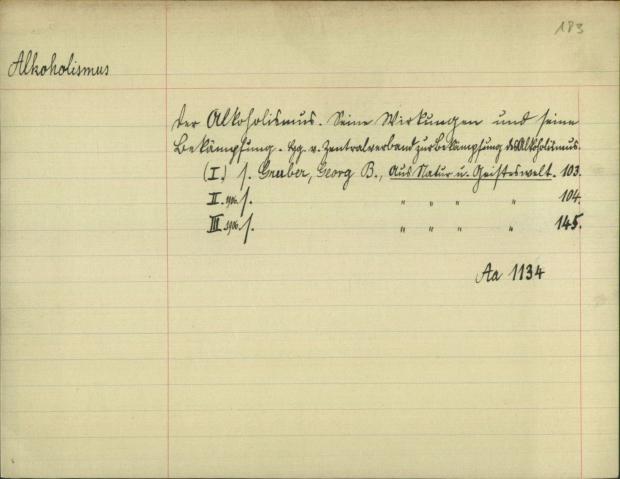 183
Alkoholismus
Der Alkoholismus. Seine Wirkungen und seine
Bekämpfung. Hg. v. Zentralverband zur Bekämpfung d. Alkoholismus.
(I.) s. Gruber, Georg B., Aus Natur u. Geisteswelt. 103.
II. 1906. s. " " " " 104.
III. 1906. s. " " " " 145.
Aa 1134